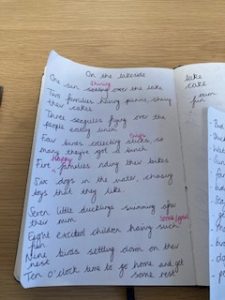 On the lakeside
One sun shining over the lake
Two families having picnics, sharing
their cakes
Three seagulls flying over the
people eating lunch
Four birds collecting sticks, so
many they've got a bunch
Five Happy families riding their bikes
Six dogs in the water, chasing
toys that they like
Seven little ducklings swimming
their mum
Eight excited children having such
fun
Nine birds settling down on their
nest
Ten o'clock time to go home and get
some rest
lake
cake
mum
fun